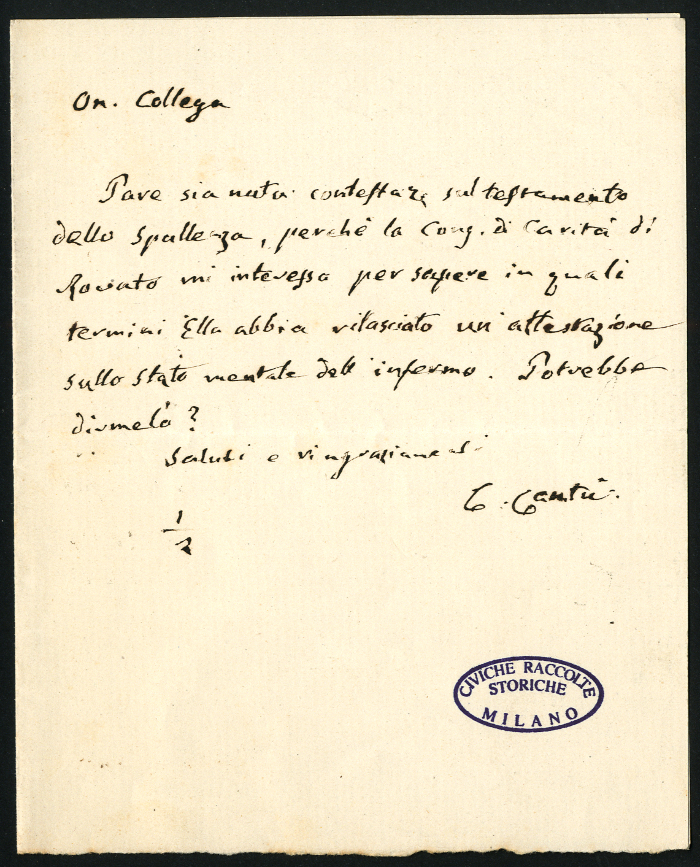 On. Collega
Pare sia nata contestaz. sul testamento
dello Spallenza, perchè la Cong. di Carità di
Rovato mi interessa per sapere in quali
termini Ella abbia rilasciato un'attestazione
sullo stato mentale dell'infermo. Potrebbe
dirmelo?
Saluti e ringraziamenti
C. Cantù.
1
2
CIVICHE RACCOLTE
STORICHE
MILANO